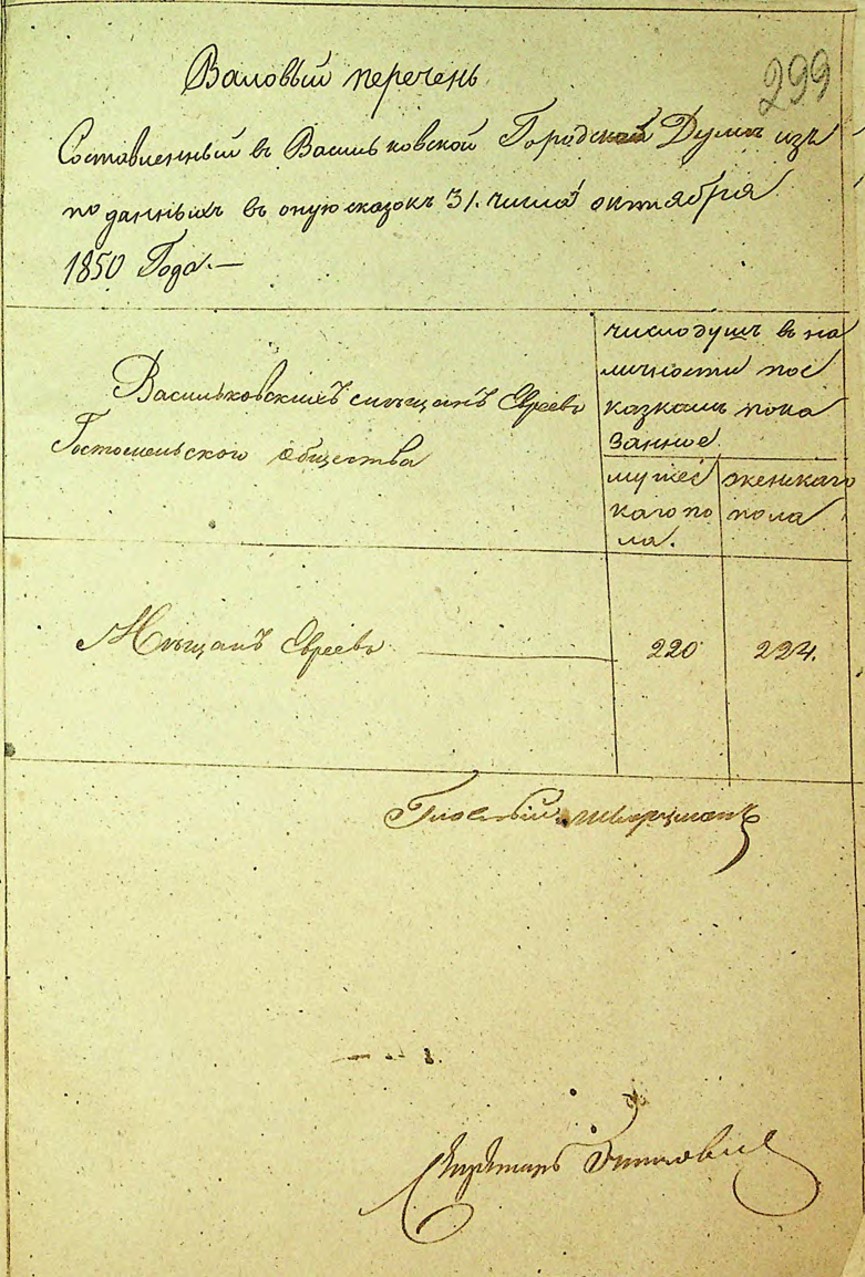 299
Валовый перечень
Составленный въ Васильковской Городской Думѣ изъ
поданныхъ въ оную сказокъ 31. числа октября
1850 Года.—
Васильковскихъ мѣщанъ Евреевъ
Гостомельского общества
число душъ въ на
личности по с
казкамъ пока
занное.
мужес
каго по
ла.
женскаго
пола
Мѣщанъ Евреевъ
220
224.
Гласный Шварцманъ
Секретарь